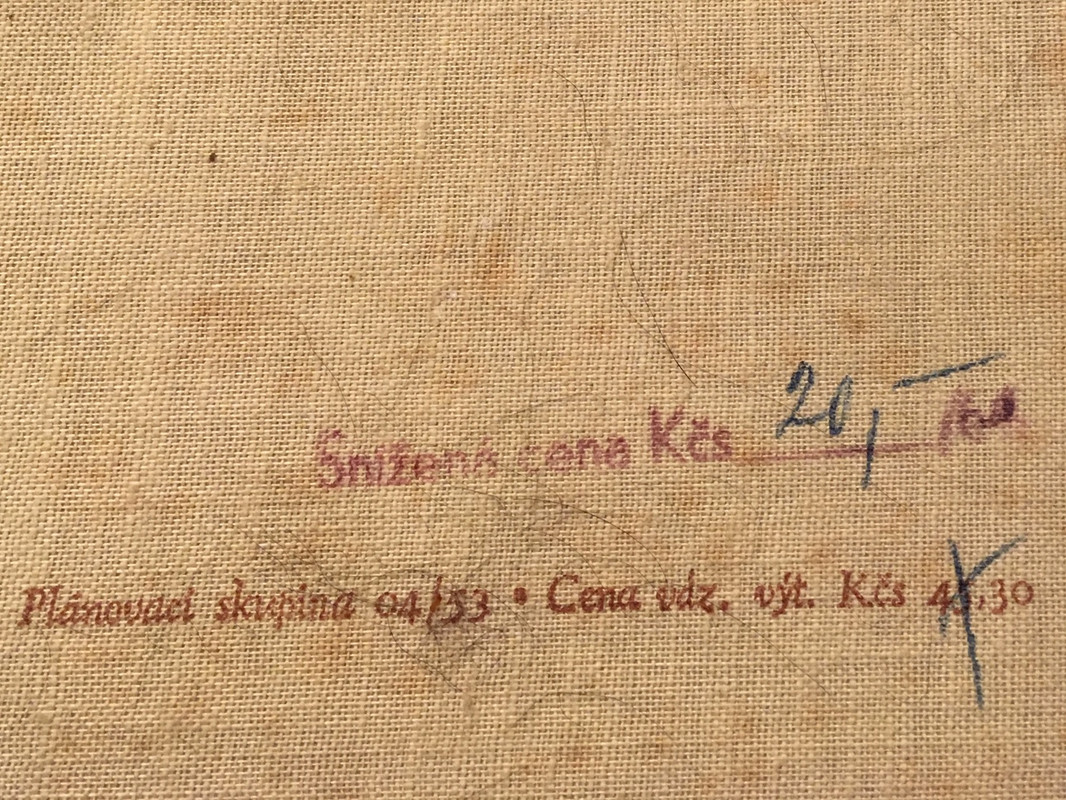 Snížená cena Kčs 20,—
Plánovací skupina 04/53 • Cena váz. výt. Kčs